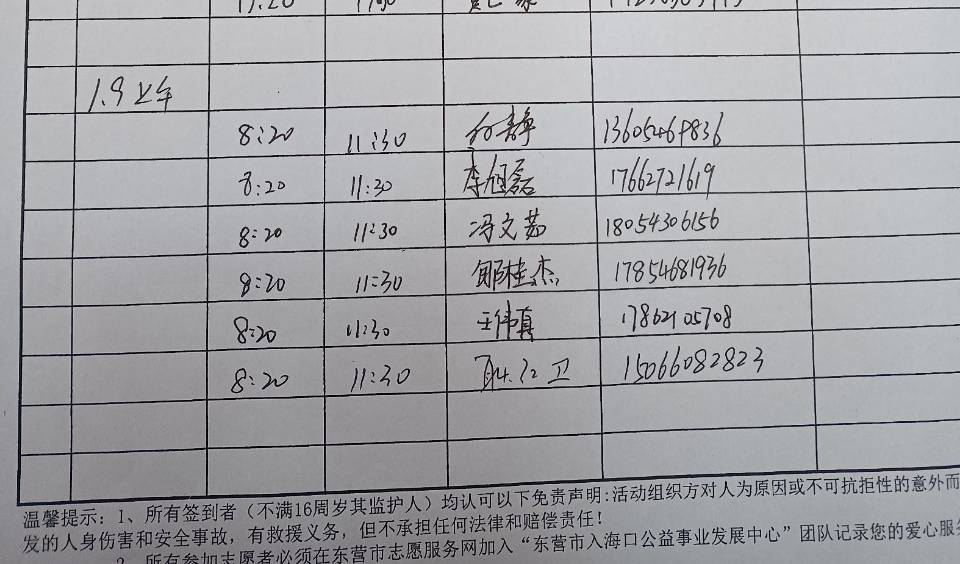 1.9上午
8:20 11:30 付静 13605469836
8:20 11:30 李旭磊 17662721619
8:20 11:30 冯文茹 18054306156
8:20 11:30 桂杰 17854681936
8:20 11:30 王伟真 17862105708
8:20 11:30 卫 15066082823
温馨提示：1、所有签到者（不满16周岁其监护人）均认可以下免责声明:活动组织方对人为原因或不可抗拒性的意外而
发的人身伤害和安全事故，有救援义务，但不承担任何法律和赔偿责任！
2、所有参加志愿者必须在东营市志愿服务网加入“东营市入海口公益事业发展中心”团队记录您的爱心服务